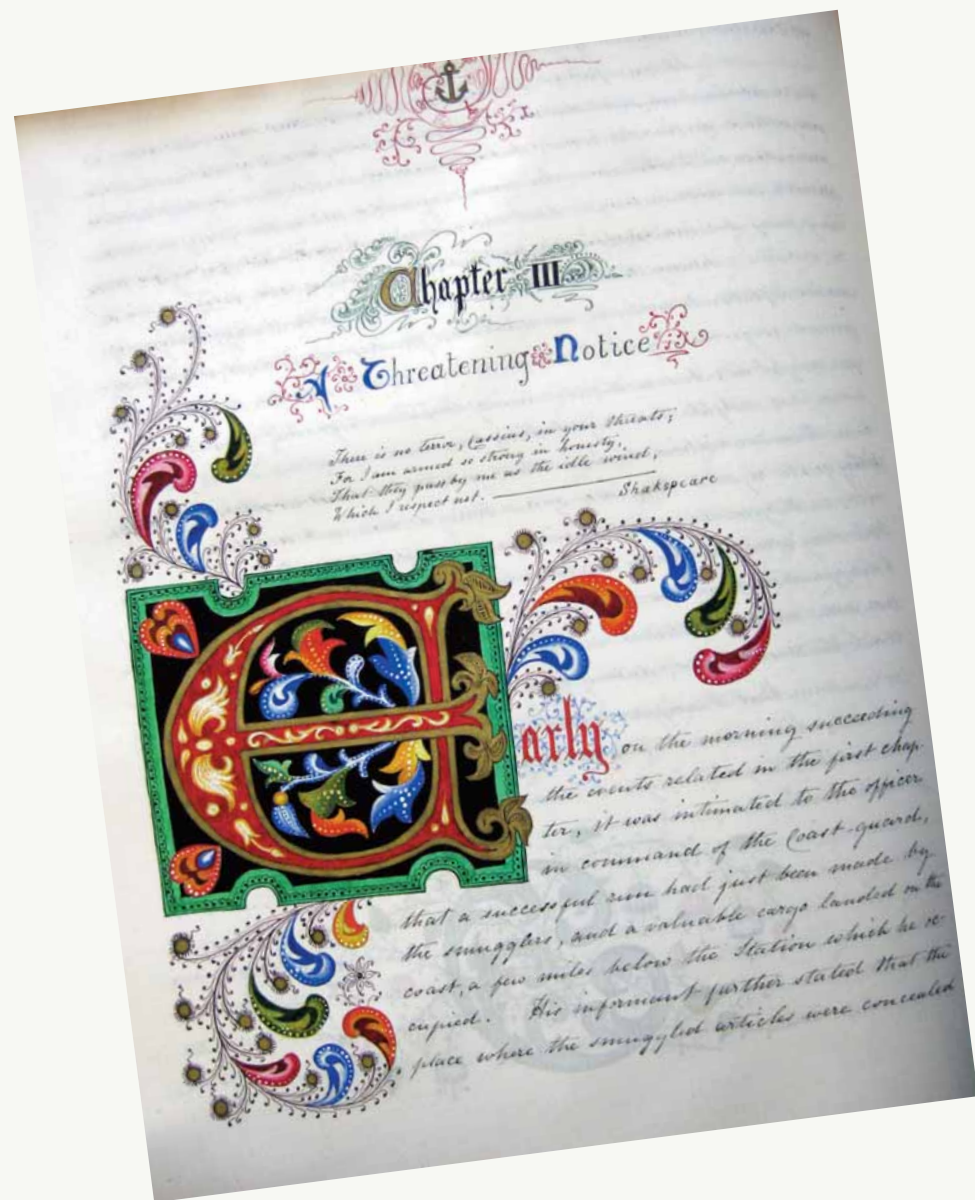 Chapter III
A Threatening Notice
There is no terror, Cassius, in your threats;
For I am armed so strong in honesty,
That they pass by me as the idle wind,
Which I respect not.
Shakspeare
Early on the morning succeeding
the events related in the first chap-
ter, it was intimated to the officer
in command of the Coast-guard,
that a successful run had just been made by
the smugglers, and a valuable cargo landed on the
coast, a few miles below the Station which he oc-
cupied. His informant further stated that the
place where the smuggled articles were concealed